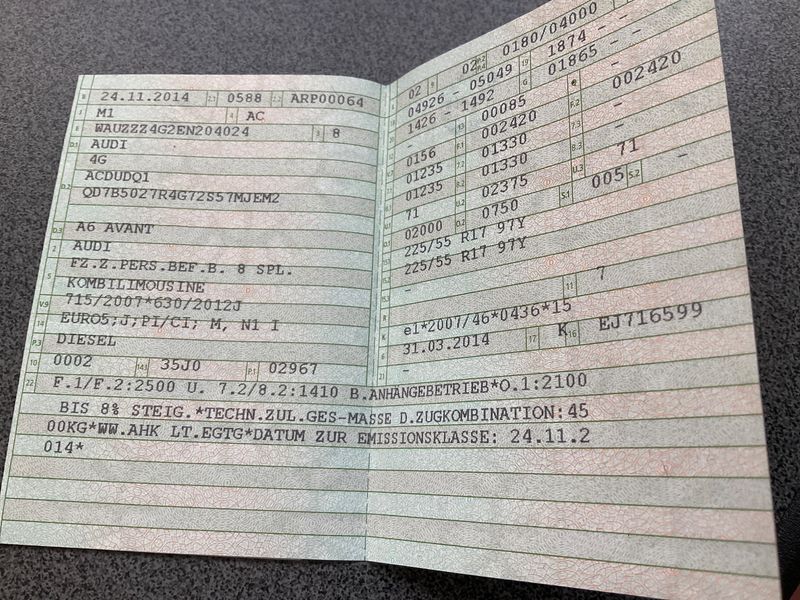 B 24.11.2014 2.1 0588 2.2 ARP00064
J M1 4 AC
E WAUZZZ4G2EN204024 3 8
D.1 AUDI
4G
D.2 ACDUDQ1
QD7B5027R4G72S57MJEM2
D.3 A6 AVANT
2 AUDI
5 FZ.Z.PERS.BEF.B. 8 SPL.
KOMBILIMOUSINE
V.9 715/2007*630/2012J
14 EURO5;J;PI/CI; M, N1 I
P.3 DIESEL
10 0002 14.1 35J0 P.1 02967
22 F.1/F.2:2500 U. 7.2/8.2:1410 B.ANHÄNGEBETRIEB*O.1:2100
BIS 8% STEIG.*TECHN.ZUL.GES-MASSE D.ZUGKOMBINATION:45
00KG*WW.AHK LT.EGTG*DATUM ZUR EMISSIONSKLASSE: 24.11.2
014*
02 9 02 P.2 P.4 0180/04000
04926 - 05049 19 1874 -
1426 - 1492 G 01865 - -
- 13 00085 e
0156 F.1 002420 F.2 002420
01235 7.2 01330 7.3 -
01235 8.2 01330 8.3 -
71 02375 U.3 71
02000 O.2 0750 S.1 005 S.2 -
225/55 R17 97Y
225/55 R17 97Y
-
11 7
R
K e1*2007/46*0436*15
6 31.03.2014 17 K 16 EJ716599
21 -